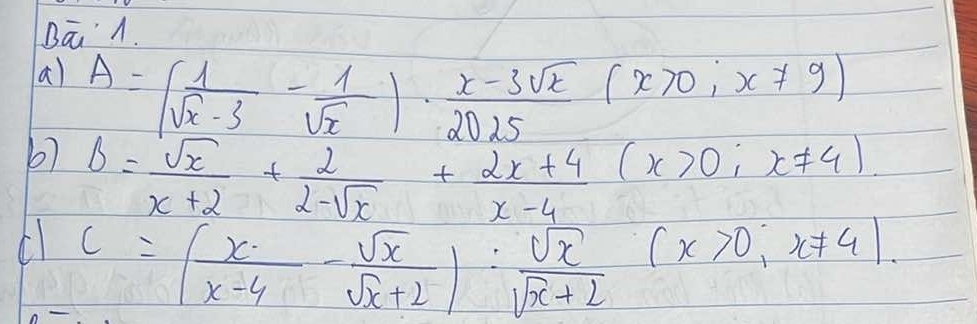 Bài 1.
a) A = (1/(√x - 3) - 1/√x) . (x - 3√x)/2025 (x > 0 ; x ≠ 9)
b) B = √x/(x + 2) + 2/(2 - √x) + (2x + 4)/(x - 4) (x > 0 ; x ≠ 4).
c) C = (x/(x - 4) - √x/(√x + 2)) : √x/(√x + 2) (x > 0 ; x ≠ 4).